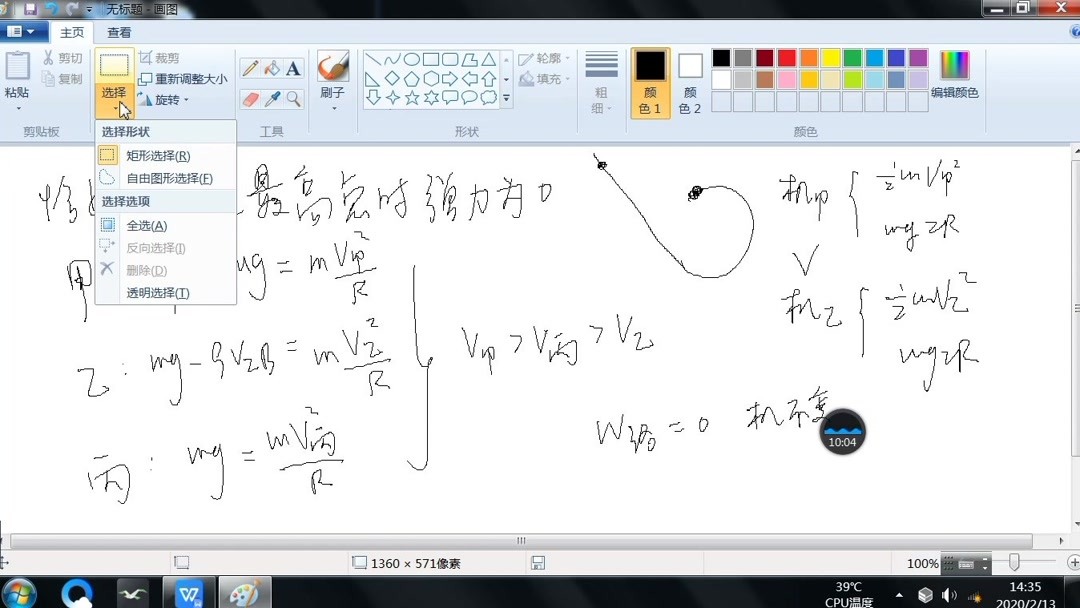 无标题 - 画图
主页 查看
粘贴
剪切
复制
剪贴板
选择
裁剪
重新调整大小
旋转
A
工具
刷子
轮廓
填充
形状
粗细
颜色 1
颜色 2
颜色
编辑颜色
选择形状
矩形选择(R)
自由图形选择(F)
选择选项
全选(A)
反向选择(I)
删除(D)
透明选择(T)
恰 最高点时弹力为0
甲 mg = m V甲² / R
乙: mg - qV乙B = m V乙² / R
丙: mg = mV丙² / R
V甲 > V丙 > V乙
机甲 { ½mV甲²
mg2R
V
机乙 { ½mV乙²
mg2R
W洛 = 0 机不变
10:04
1360 × 571像素
100%
39℃
CPU温度
14:35
2020/2/13